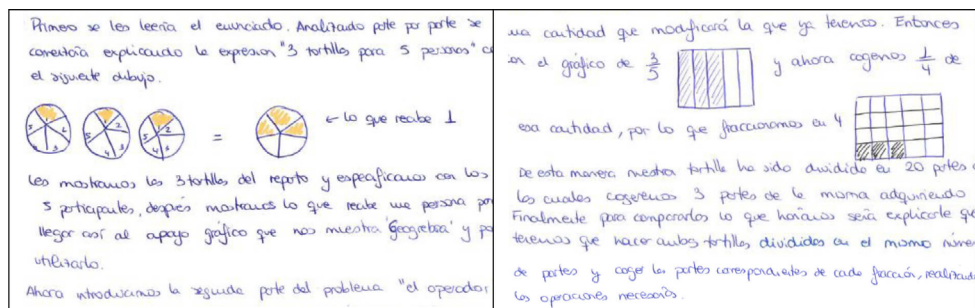 Primero se les leería el enunciado. Analizado parte por parte se
comentaría explicando la expresion "3 tortillas para 5 personas" co
el siguiente dibujo.
= ← Lo que recibe 1
les mostramos las 3 tortillas del reparto y especificamos con los
5 participantes, después mostramos lo que recibe una persona par
llegar así al apoyo gráfico que nos muestra 'geogrebra' y po
utilizarlo.
Ahora introducimos la segunda parte del problema "el operador
una cantidad que modificará la que ya tenemos. Entonces
en el gráfico de 3/5 y ahora cogemos 1/4 de
esa cantidad, por lo que fraccionamos en 4
De esta manera nuestra tortilla ha sido dividida en 20 partes
los cuales cogeremos 3 partes de la misma adquiriendo
Finalmente para compararlos lo que haríamos sería explicarle que
tenemos que hacer ambas tortillas divididas en el mismo núme
de partes y coger las partes correspondientes de cada fracción, realizando
las operaciones necesarias.